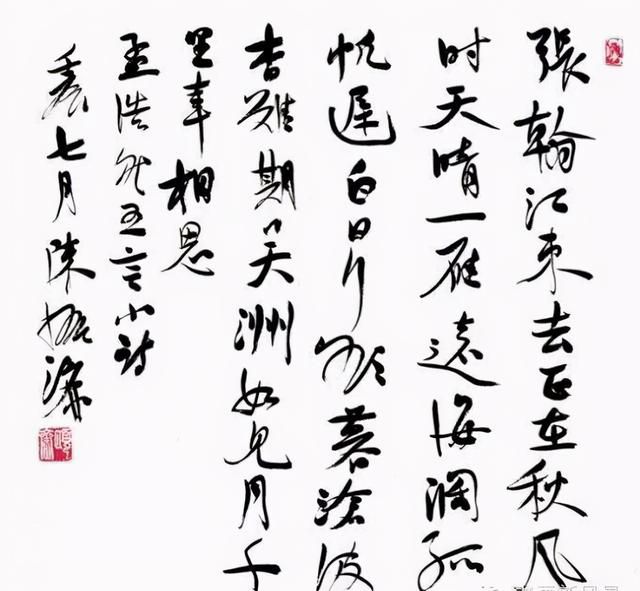 張翰江東去正在秋风
时天晴一雁遠海濶孤
帆遲白日行欲暮滄波
杳難期吴洲如見月千
里幸相思
孟浩然五言小詩
七月陳振濂